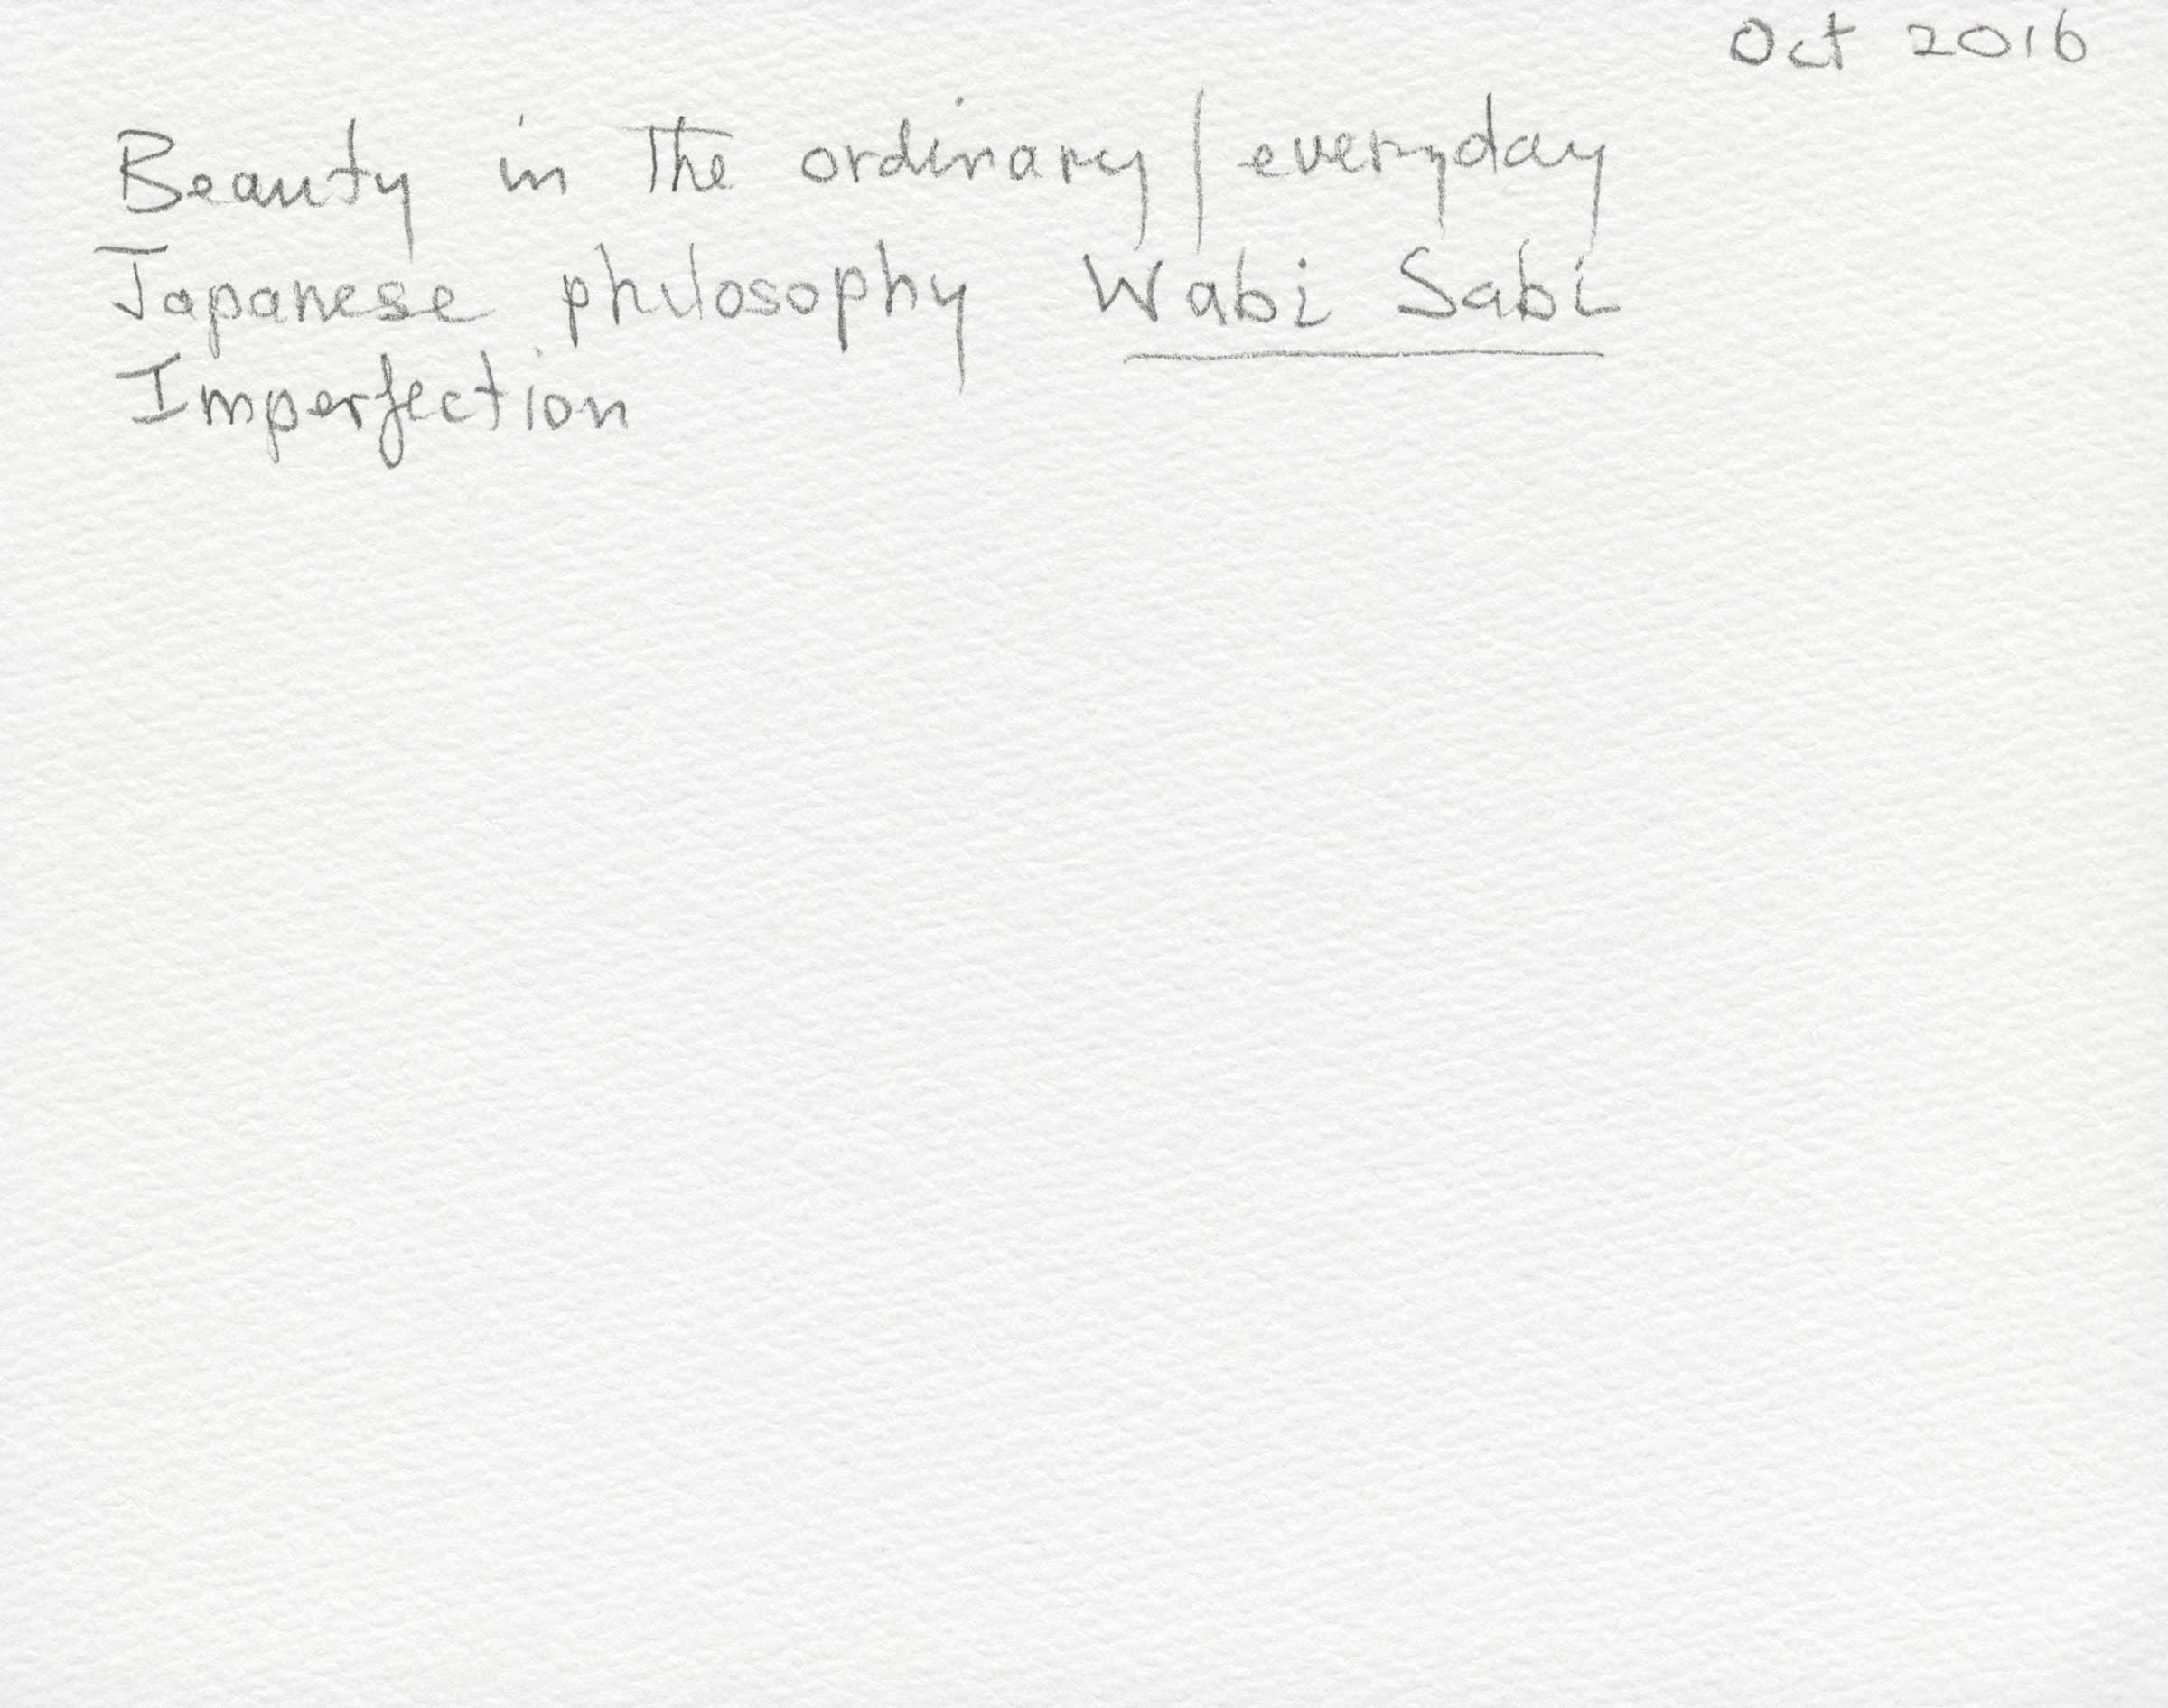 Oct 2016
Beauty in the ordinary / everyday
Japanese philosophy Wabi Sabi
Imperfection